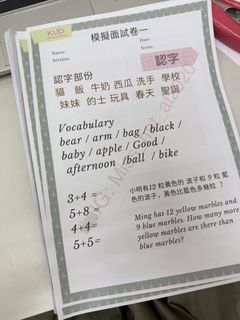 KUD
模擬面試卷一
Name:
Date:
Section:
Score:
認字
認字部份
貓 飯 牛奶 西瓜 洗手 學校
妹妹 的士 玩具 春天 聖誕
Vocabulary
bear / arm / bag / black /
baby / apple / Good /
afternoon /ball / bike
3+4=
5+8=
4+4=
5+5=
小明有12 粒黃色的 波子和 9 粒 藍
色的波子。黃色比藍色多幾粒 ?
Ming has 12 yellow marbles and
9 blue marbles. How many more
yellow marbles are there than
blue marbles?